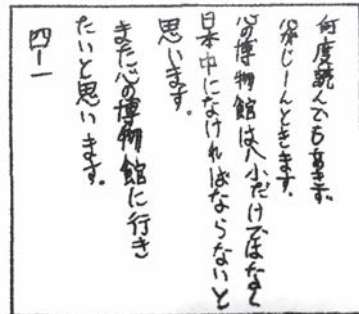 何度読んでもあきず、
心がじーんときます。
心の博物館は八小だけではなく
日本中になければならないと
思います。
また心の博物館に行き
たいと思います。
四ー一